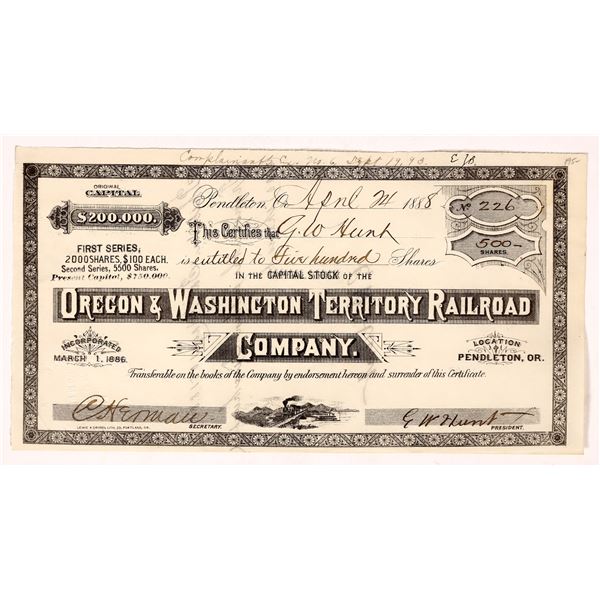 Complainants Ex. No. 6 Sept 19, 93. E J B
ORIGINAL
CAPITAL
$200.000.
Pendleton, Or. April 24 1888
No 226
This Certifies that G. W Hunt
500-
SHARES.
FIRST SERIES,
2000 SHARES, $100 EACH.
Second Series, 5500 Shares.
Present Capital, $750.000.
is entitled to Five hundred Shares
IN THE CAPITAL STOCK OF THE
OREGON & WASHINGTON TERRITORY RAILROAD
COMPANY.
INCORPORATED
MARCH 1, 1886.
LOCATION
PENDLETON, OR.
Transferable on the books of the Company by endorsement hereon and surrender of this Certificate.
SECRETARY.
G W Hunt
PRESIDENT.
LITH. CO. PORTLAND, OR.